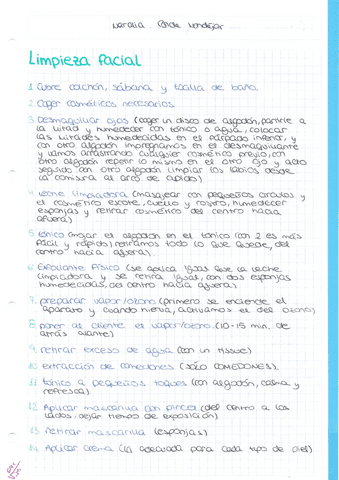 Natalia Conde Mondejar
Limpieza facial
1. Cubre colchón, sábana y toalla de baño.
2. Coger cosméticos necesarios.
3. Desmaquillar ojos (coger un disco de algodón, partirle a
la mitad y humedecer con tónico o agua, colocar
las mitades humedecidas en el párpado inferior, y
con otro algodón impregnamos en el desmaquillante
y vamos arrastrando cualquier cosmético previo, con
otro algodón repetir lo mismo en el otro ojo y acto
seguido con otro algodón limpiar los labios desde
la comisura al arco de cupido)
4. Leche limpiadora (masajear con pequeños círculos y
el cosmético escote, cuello y rostro, humedecer
esponjas y retirar cosmético del centro hacia
afuera).
5. tónico (mojar el algodón en el tónico (con 2 es más
fácil y rápido) retiramos todo lo que quede, del
centro hacia afuera).
6. Exfoliante Físico (se aplica igual que la leche
limpiadora y se retira igual, con dos esponjas
humedecidas, del centro hacia afuera).
7. preparar vapor/ozono (primero se enciende el
aparato y cuando hierva, activamos el del ozono)
8. poner al cliente el vapor/ozono (10-15 min. de
atrás alante)
9. retirar exceso de agua (con un tissue)
10. extracción de comedones (SÓLO COMEDONES).
11. tónico a pequeños toques (con algodón, calma y
refresca)
12. Aplicar mascarilla con pincel (del centro a los
lados, dejar tiempo de exposición)
13. retirar mascarilla (esponjas)
14. Aplicar crema (la adecuada para cada tipo de piel)